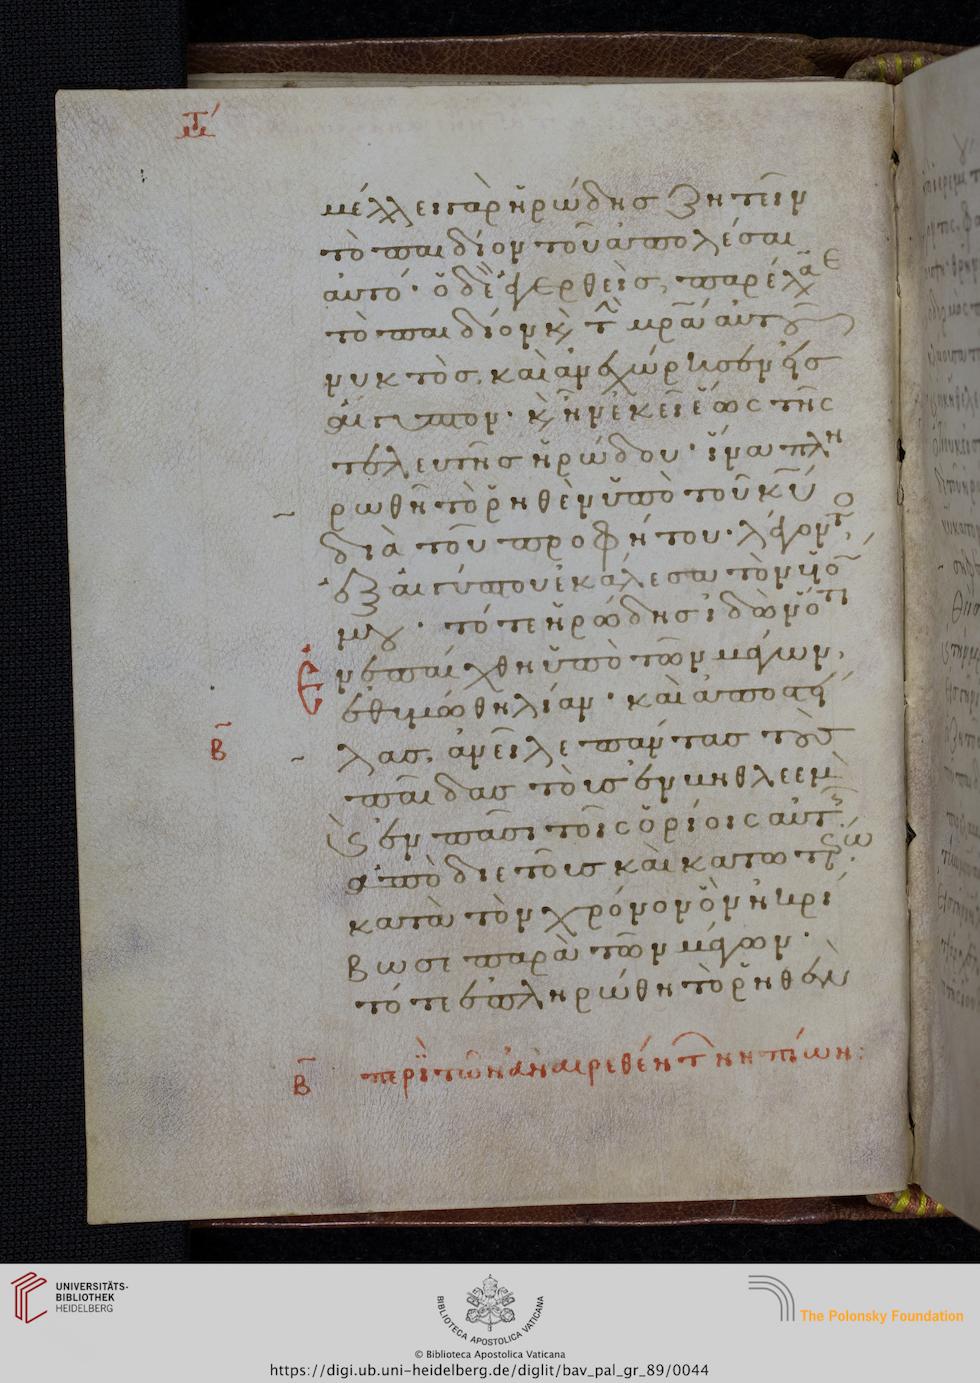 μέλλει γαρ ἡρώδης ζητεῖν
τὸ παιδίον τοῦ ἀπολέσαι
αυτό· ὁ δὲ ἐγερθεὶς, παρέλαβε
τὸ παιδίον κ(αὶ) τ(ὴν) μρ̅α αὐτοῦ
νυκτὸς, καὶ ἀνεχώρησεν εἰς
αἴγυπτον· κ(αὶ) ἦν ἐκεῖ ἕως τῆς
τελευτῆς ἡρώδου· ἵνα πλη
ρωθῆ τὸ ῥηθὲν ὑπὸ τοῦ κυ̅
διὰ τοῦ προφήτου· λέγοντο(ς),
ἐξ αἰγύπτου ἐκάλεσα τὸν υἱό(ν)
μου· τότε ἡρώδης ἰδὼν ὅτι
ἐνεπαίχθη ὑπὸ τῶν μάγων,
ἐθυμώθη λίαν· καὶ ἀποστεί
λας, ἀνεῖλε πάντας τοὺς
παῖδας τοὺς ἐν βηθλεὲμ
κ(αὶ) ἐν πᾶσι τοῖς ὁρίοις αὐτῆς·
ἀπὸ διετοῦς καὶ κατωτέρω·
κατὰ τὸν χρόνον ὃν ἠκρί
βωσε παρὰ τῶν μάγων·
τότε ἐπληρώθη τὸ ῥηθὲν
Β̅
Β̅ περὶ τῶν ἀναιρεθέντ(ων) νηπίων:
UNIVERSITÄTS-
BIBLIOTHEK
HEIDELBERG
BIBLIOTECA APOSTOLICA VATICANA
The Polonsky Foundation
© Biblioteca Apostolica Vaticana
https://digi.ub.uni-heidelberg.de/diglit/bav_pal_gr_89/0044